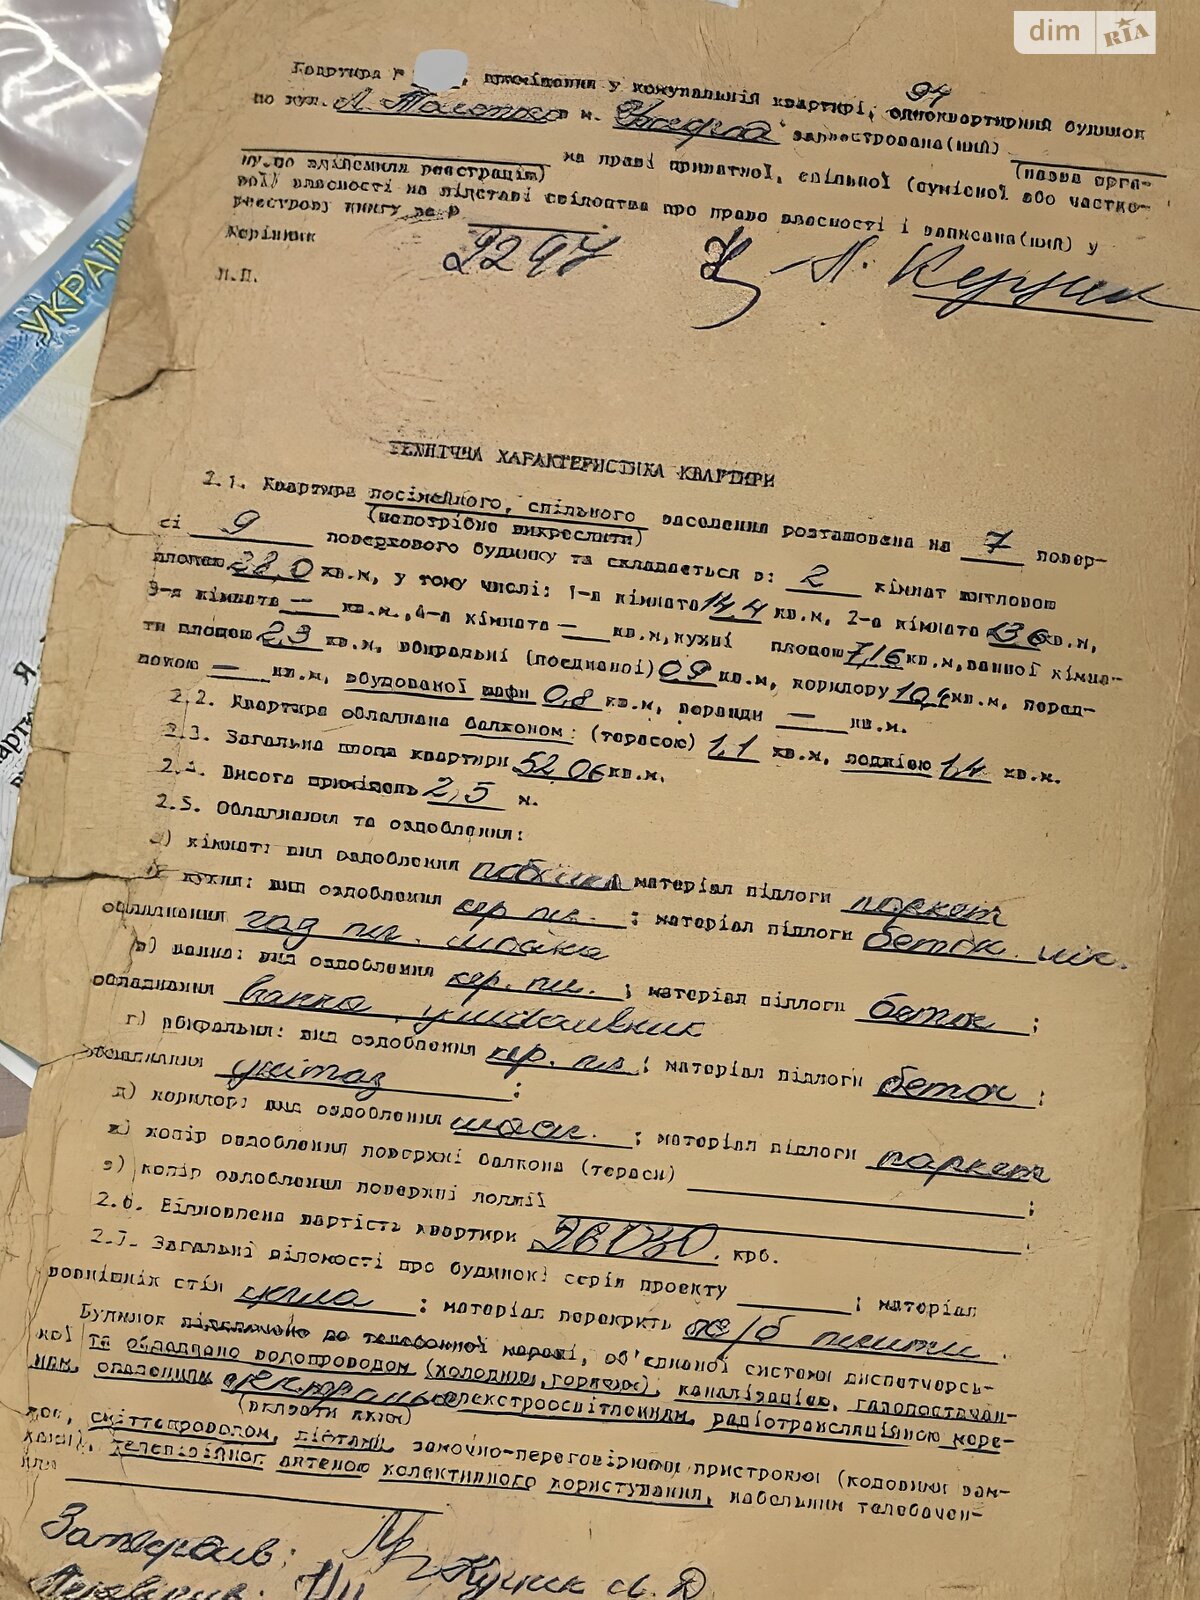 dim RIA
УКРАЇН
Квартира №, приміщення у комунальній квартирі, одноквартирний будинок 94
по вул. Л. Толстого в м. зареєстрована(ний)
(назва орга-
ну, що здійснила реєстрацію) на праві приватної, спільної (сумісної або частко-
вої) власності на підставі свідоцтва про право власності і записана(ний) у
реєстрову книгу за №
Керівник 2297
М.П.
ТЕХНІЧНА ХАРАКТЕРИСТИКА КВАРТИРИ
2.1. Квартира посімейного, спільного заселення розташована на 7 повер-
(непотрібне викреслити)
сі 9 поверхового будинку та складається з: 2 кімнат житловою
площею 28,0 кв.м, у тому числі: 1-а кімната 14,4 кв.м, 2-а кімната 13,6 кв.м,
3-я кімната — кв.м., 4-а кімната — кв.м, кухні площею 7,16 кв.м, ванної кімна-
ти площею 2,3 кв.м, вбиральні (поєднаної) 0,9 кв.м, коридору 10,4 кв.м, перед-
покою — кв.м, вбудованої шафи 0,8 кв.м, веранди — кв.м.
2.2. Квартира обладнана балконом: (терасою) 1,1 кв.м, лоджією 1,4 кв.м.
2.3. Загальна площа квартири 52,06 кв.м.
2.4. Висота приміщень 2,5 м.
2.5. Обладнання та оздоблення:
а) кімнат: вид оздоблення матеріал підлоги паркет
б) кухня: вид оздоблення кер. пл. ; матеріал підлоги бетон.
обладнання газ пл. мойка
в) ванна: вид оздоблення кер. пл. ; матеріал підлоги бетон ;
обладнання ванна, умивальник
г) вбиральня: вид оздоблення кер. пл ; матеріал підлоги бетон ;
обладнання унітаз ;
д) коридор: вид оздоблення ; матеріал підлоги паркет
ж) колір оздоблення поверхні балкона (тераси) ;
з) колір оздоблення поверхні лоджії
2.6. Відновлена вартість квартири крб.
2.7. Загальні відомості про будинок: серія проекту ; матеріал
зовнішніх стін ; матеріал перекрить ж/б плити.
Будинок підключено до телефонної мережі, об'єднаної системи диспетчерсь-
кої та обладнано водопроводом (холодною, гарячою), каналізацією, газопостачан-
ням, опаленням електроосвітленням, радіотрансляційною мере-
(вказати яким)
жею, сміттєпроводом, ліфтами, замочно-переговірними пристроями (кодовими зам-
ками), телевізійної антеною колективного користування, кабельним телебачен-
ням
Затвердив: